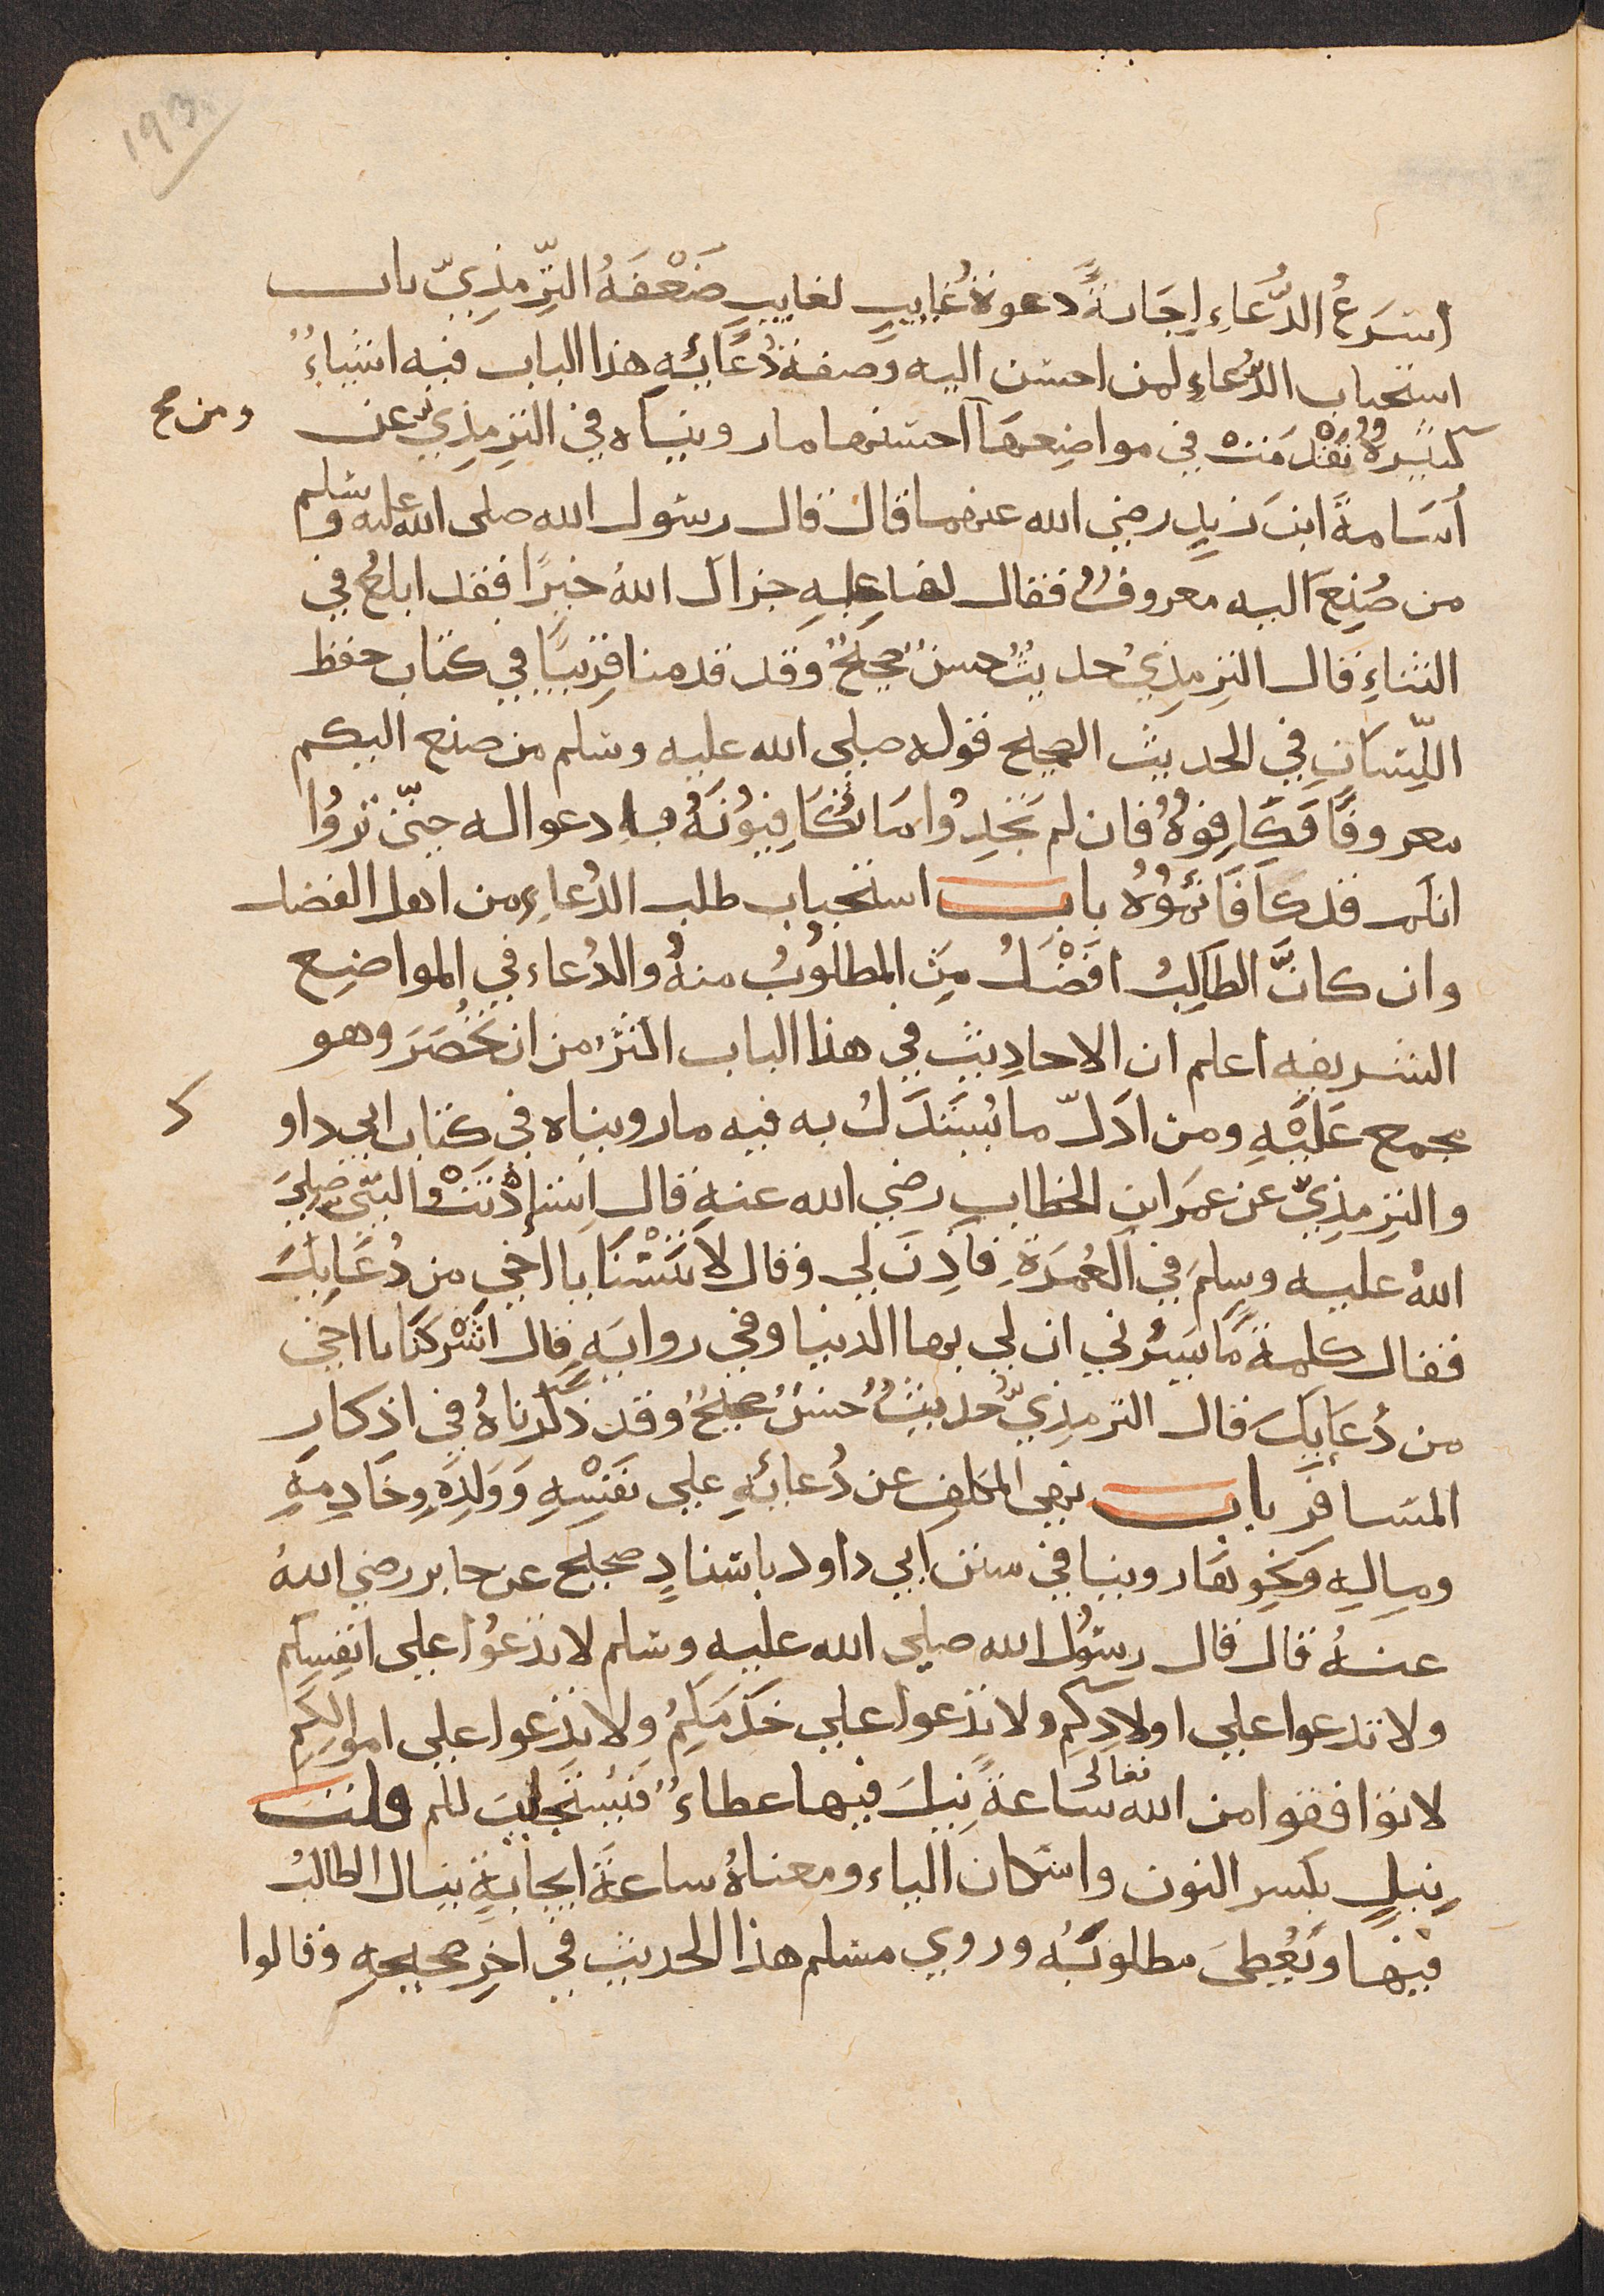 193
اسْرَعُ الدُّعَاءِ اِجَابةً دعوةُ غايبٍ لغايبٍ ضَعْفَهُ التِّرمذِيّ باب
استحباب الدُّعاءِ لمن احسن اليه وصفة دُعَائِهِ هذا الباب فيه اشياءُ
كثيرةٌ تقدّمَتْ في مواضِعِهَا احسنها ما رويناه في الترمذِي عن
ومن صح
أسَامةَ ابن زيدٍ رضي الله عنهما قال قال رسول الله صلى الله عليه وسلم
من صُنِعَ اليه معروفٌ فقال لفاعِلِهِ جزاك اللهُ خيرًا فقد ابلغ في
الثناءِ قال الترمذِي حديثٌ حسنٌ صحيحٌ وقد قدمنا قريبًا في كتاب حفظ
اللِّسَانِ في الحديث الصحيح قوله صلى الله عليه وسلم من صنع اليكم
معروفًا فَكَافِؤهُ فان لم تجِدُوا مَا تُكَافِيُونَهُ فادعوا له حتّى تروُا
انكم قد كافَائمُوْهُ باب استحباب طلب الدُعاءِ من اهل الفضل
وان كانَ الطالِبُ افضَلُ مِنَ المطلوُبُ منهُ والدُعاء في المواضِع
الشريفه اعلم ان الاحاديث في هذا الباب اكثرُ من ان تُحْصَرَ وهو
مجمع عَلَيْهِ ومن ادَلّ ما يُسْتَدَلُ به فيه ما رويناه في كتاب ابي داو
د
والترمذِيّ عن عمَرَ ابن الخطاب رضي الله عنه قال اِستاِذْنَتْ النبّي صلى
اللهُ عليه وسلم في العُمْرَةِ فَاَذِنَ لي وقال لا تنسْنَا يا اخي من دُعَايِكَ
فقال كلمة مَا يَسُرُّني ان لي بها الدنيا وفي روايه قال اشْرِكنَا يا اخي
من دُعَايِكَ قال الترمذِيّ حُديثٌ حُسنٌ صحيحٌ وقد ذكرناهُ في اذكارِ
المسَافِرِ باب نهي المكلف عن دُعَائِهِ على نفسِهِ وَوَلَدِهِ وخَادِمهِ
ومالِهِ وَنحوِهَا روينا في سنن ابي داود باسنادٍ صحيح عن جابر رضي اللهُ
عنهُ قال قال رسُولُ الله صلى الله عليه وسلم لا تدْعُوا على انفسِكم
ولا تدعوا على اولادِكم ولا تدْعوا على خَدَمَكِمُ ولا تدْعوا على اموالِكُمِ
لا توَافقوا من الله تعالى ساعةً نِيلَ فيها عطاءٌ فَيُستجابَ لكم قلت
نِيلٍ بكسر النون واسكان الياء ومعناهُ ساعةَ ايجابةٍ ينال الطالبُ
فيها ويُعْطىَ مطلوبَهُ وروي مسلم هذا الحديث في اخِرِ صحيحِهِ وقالوا